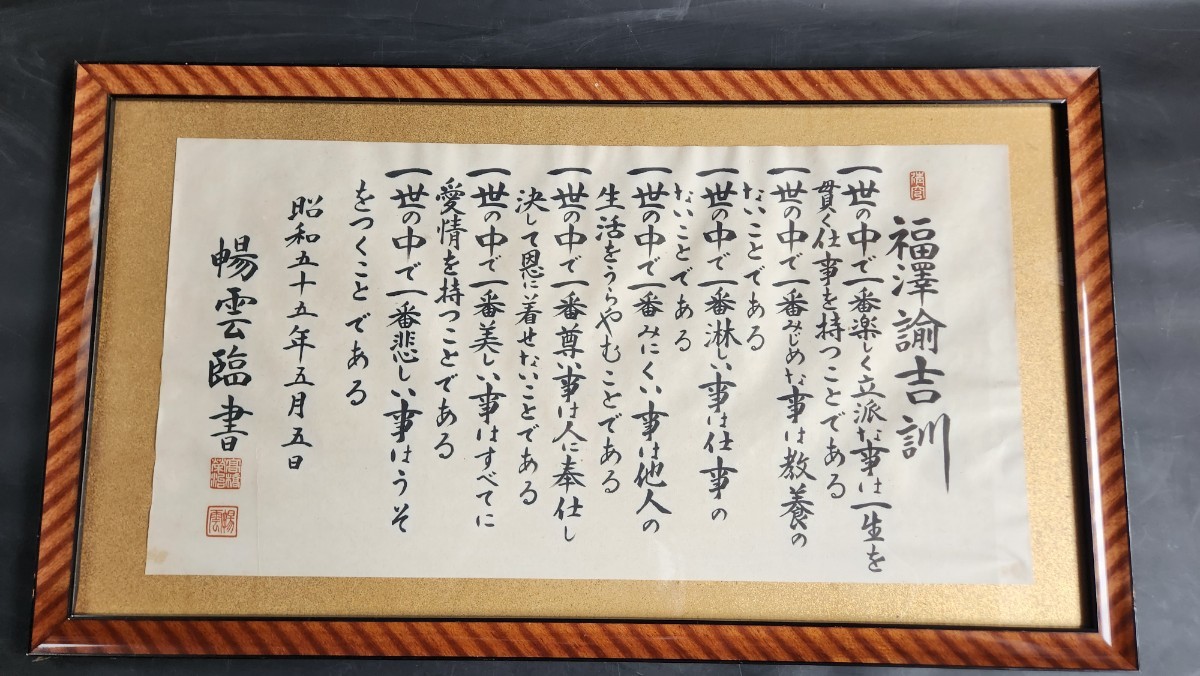 福澤諭吉訓
一世の中で一番楽しく立派な事は一生を
貫く仕事を持つことである
一世の中で一番みじめな事は教養の
ないことである
一世の中で一番淋しい事は仕事の
ないことである
一世の中で一番みにくい事は他人の
生活をうらやむことである
一世の中で一番尊い事は人に奉仕し
決して恩に着せないことである
一世の中で一番美しい事はすべてに
愛情を持つことである
一世の中で一番悲しい事はうそ
をつくことである
昭和五十五年五月五日
暢雲臨書
暢雲